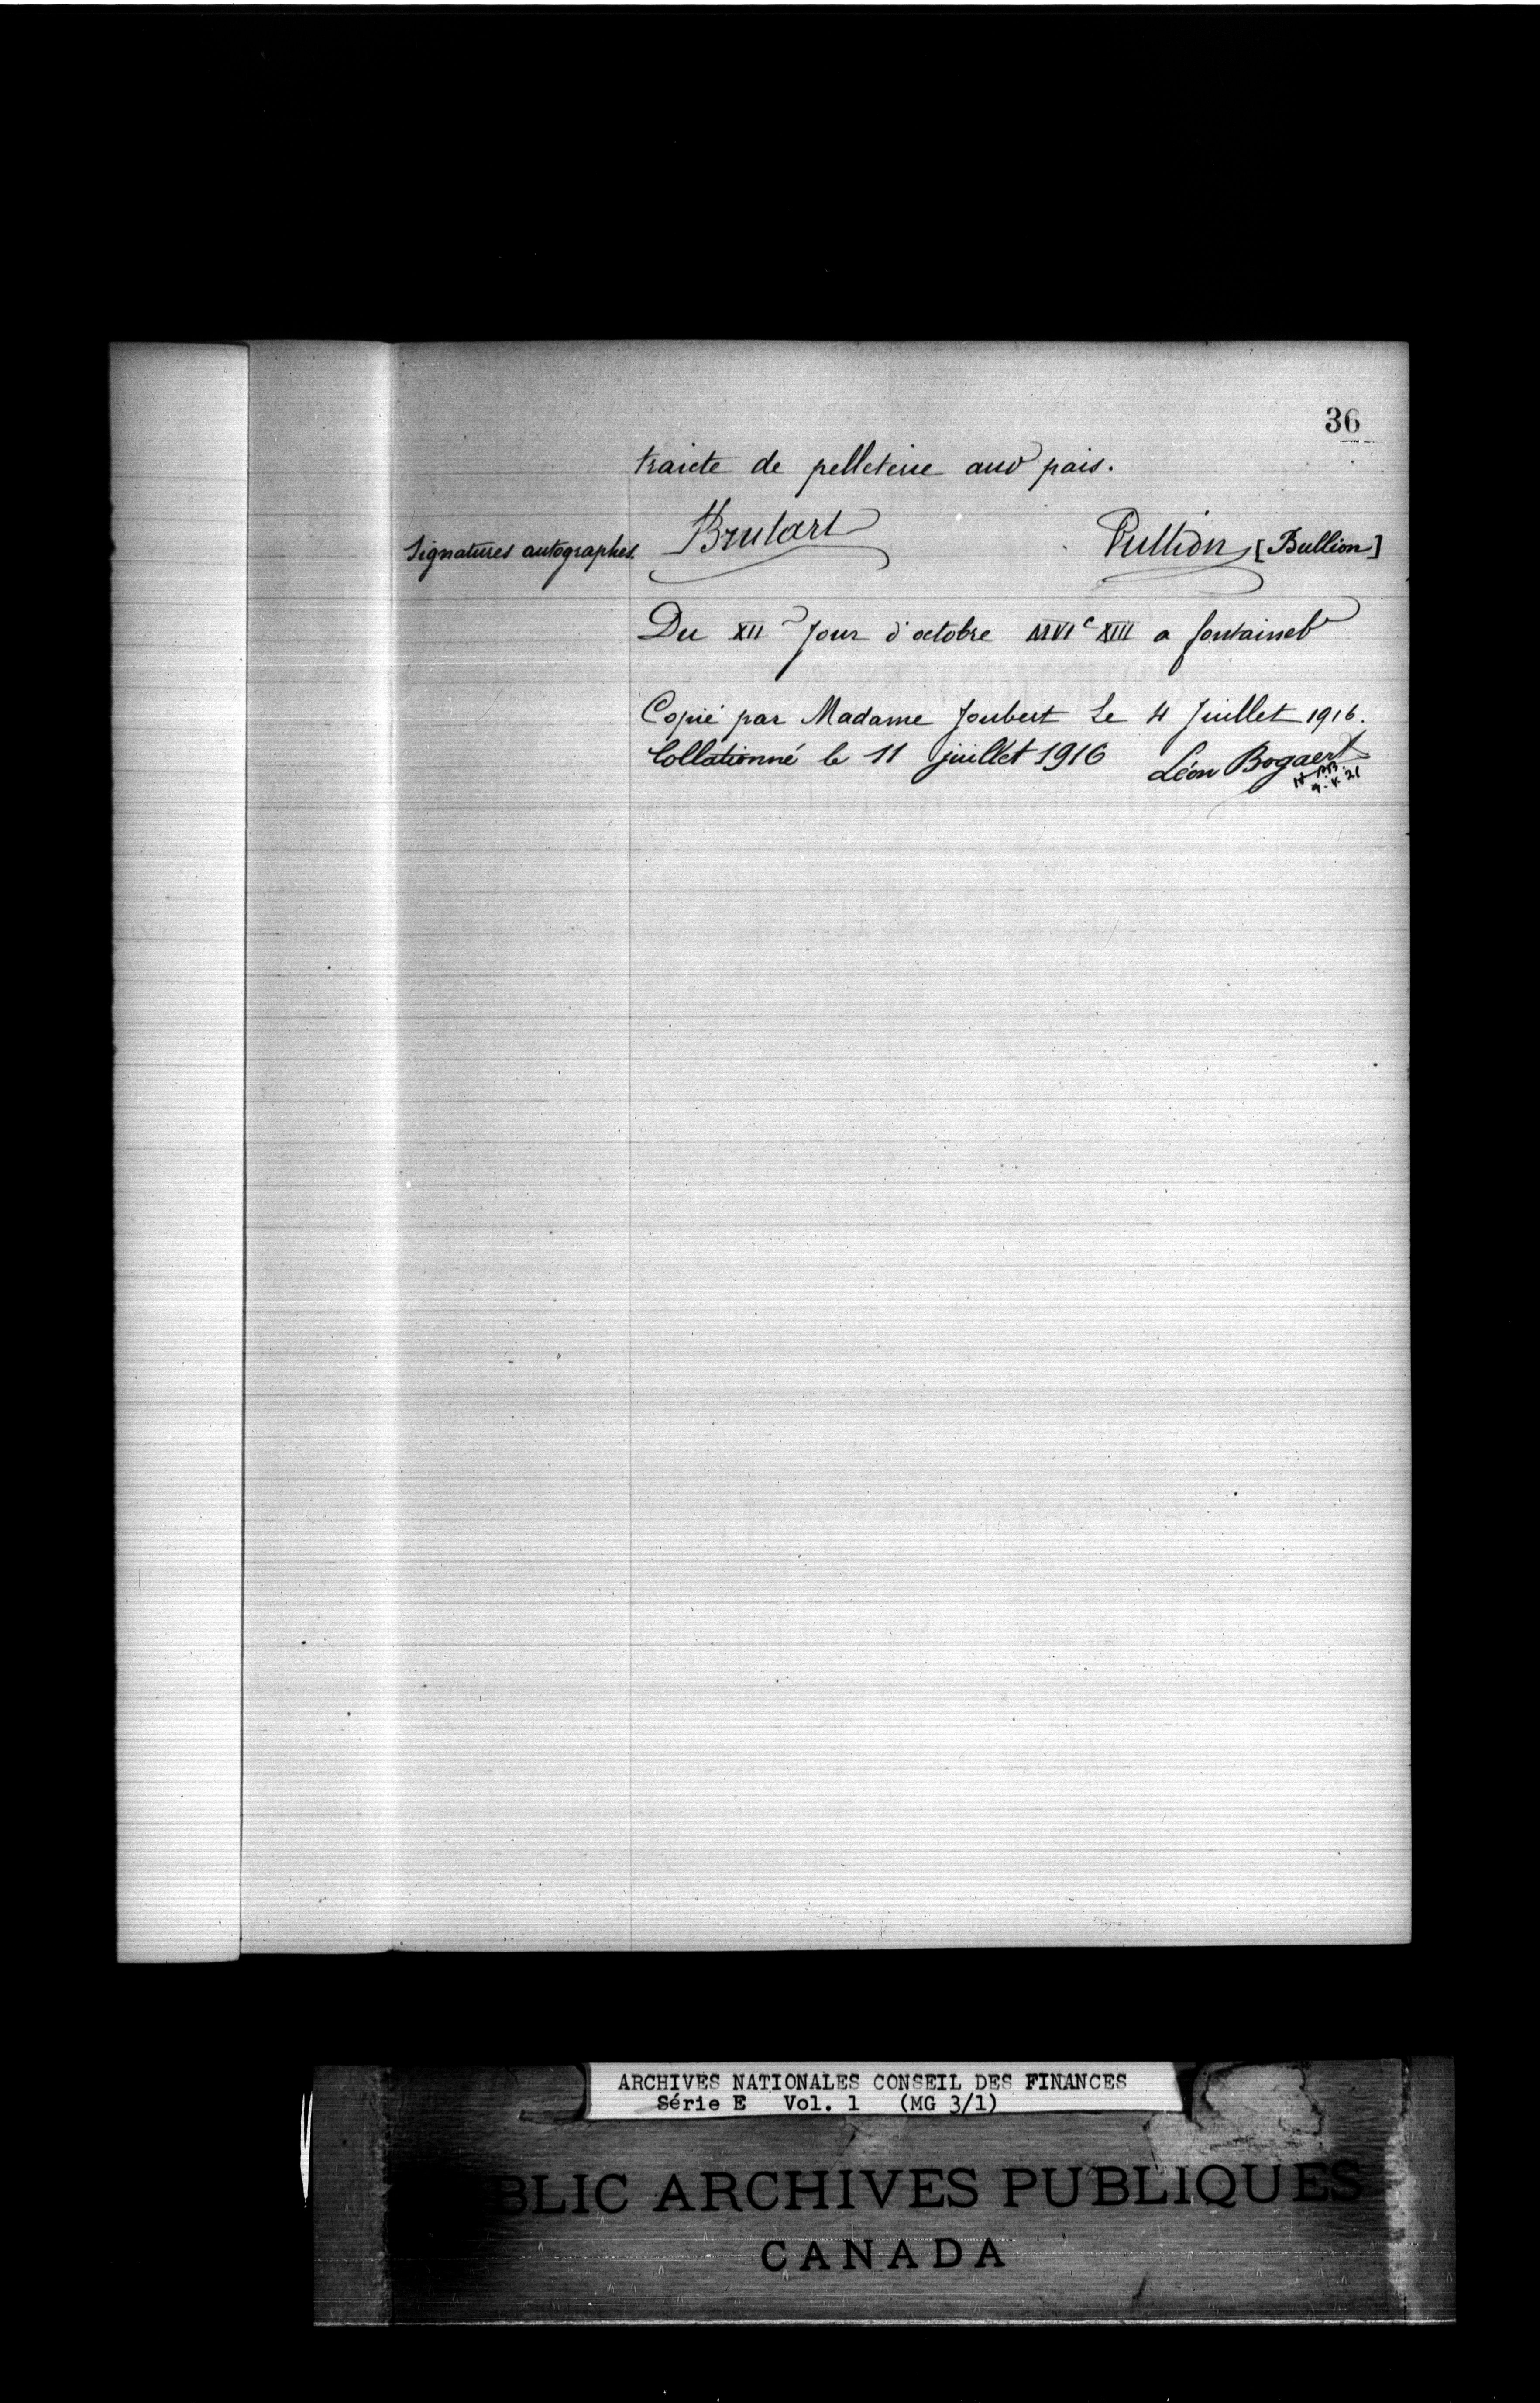 36
traicte de pelleterie aud pais.
Signatures autographes. Brulart Bullion [Bullion]
Du XII Jour d'octobre MVIc XIII a fontainebr
Copié par Madame Joubert Le 4 Juillet 1916.
Collationné le 11 juillet 1916 Léon Bogaert
ARCHIVES NATIONALES CONSEIL DES FINANCES
Série E Vol. 1 (MG 3/1)
BLIC ARCHIVES PUBLIQUES
CANADA